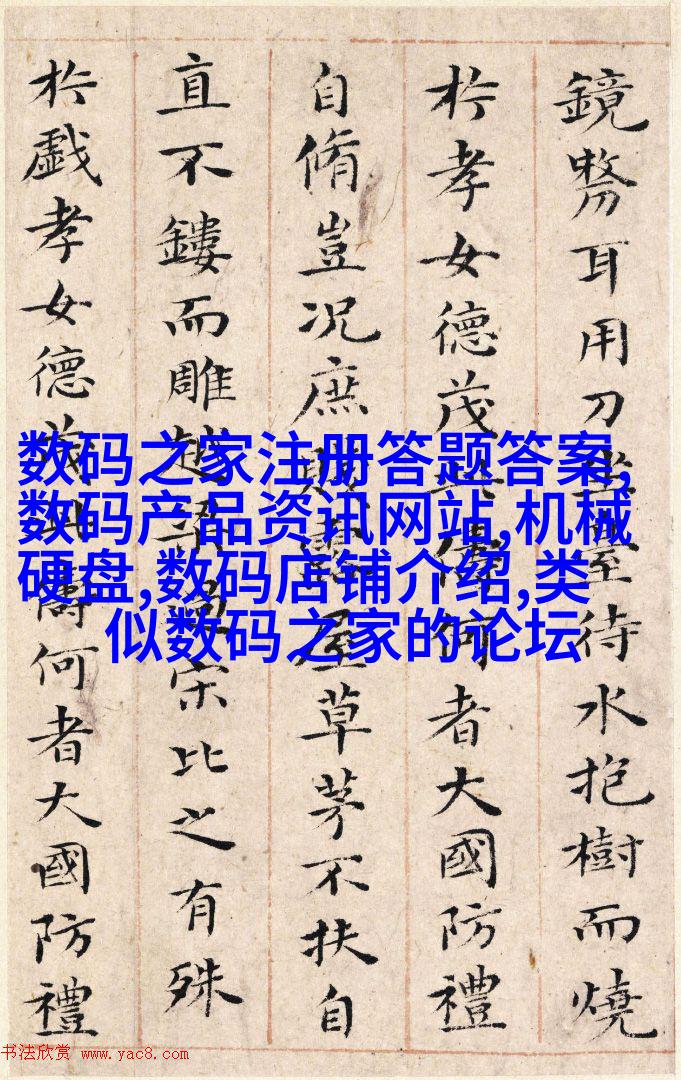 鏡剺耳用刀待水抱樹而燒
於孝女德茂何者大國防禮
自脩豈况庶屋草茅不扶自
直不鏤而雕越宋比之有殊
於戲孝女德何者大國防禮
数码之家注册答题答案,
数码产品资讯网站,机械
硬盘,数码店铺介绍,类
似数码之家的论坛
书法欣赏 www.yac8.com